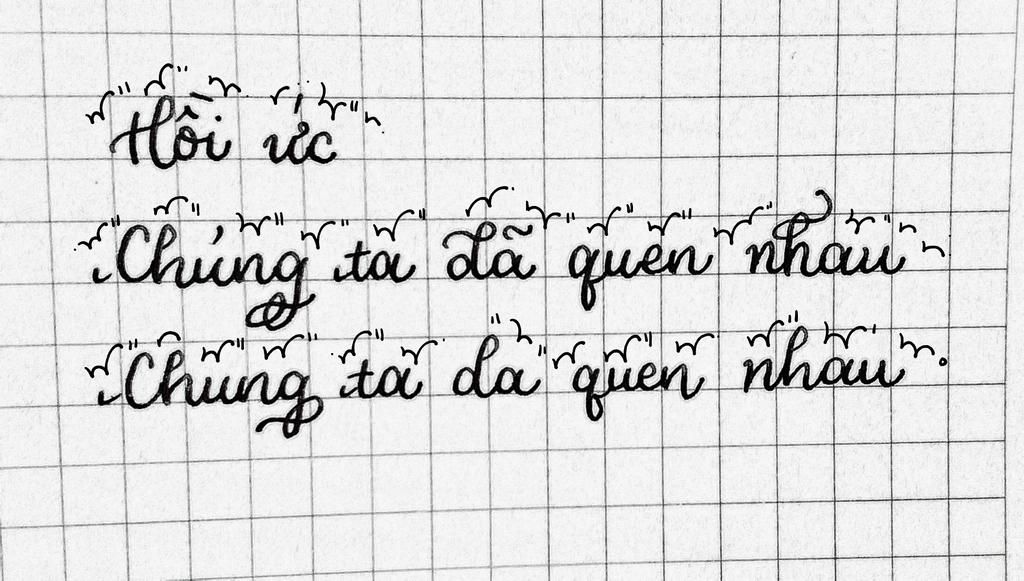 Hồi ức
Chúng ta đã quen nhau
Chung ta da quen nhau.